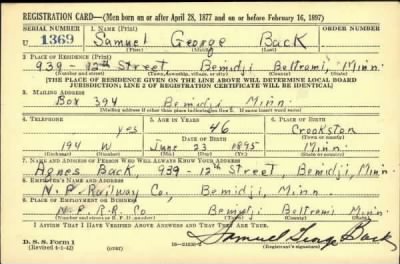 REGISTRATION CARD—(Men born on or after April 28, 1877 and on or before February 16, 1897)
SERIAL NUMBER 1. NAME (Print) ORDER NUMBER
U 1369 Samuel George Back
(First) (Middle) (Last)
2. PLACE OF RESIDENCE (Print)
939 - 12th Street Bemidji Beltrami Minn.
(Number and street) (Town, township, village, or city) (County) (State)
[THE PLACE OF RESIDENCE GIVEN ON THE LINE ABOVE WILL DETERMINE LOCAL BOARD
JURISDICTION; LINE 2 OF REGISTRATION CERTIFICATE WILL BE IDENTICAL]
3. MAILING ADDRESS
Box 394 Bemidji Minn.
[Mailing address if other than place indicated on line 2. If same insert word same]
4. TELEPHONE 5. AGE IN YEARS 6. PLACE OF BIRTH
yes 46 Crookston
DATE OF BIRTH (Town or county)
194 W June 23 1895 Minn.
7. NAME AND ADDRESS OF PERSON WHO WILL ALWAYS KNOW YOUR ADDRESS
Agnes Back, 939-12th Street, Bemidji, Minn.
8. EMPLOYER'S NAME AND ADDRESS
N.P. Railway Co., Bemidji, Minn.
9. PLACE OF EMPLOYMENT OR BUSINESS
N.P. R.R. Co Bemidji Beltrami Minn
(Number and street or R. F. D. number) (Town) (County) (State)
I AFFIRM THAT I HAVE VERIFIED ABOVE ANSWERS AND THAT THEY ARE TRUE.
D. S. S. Form 1
(Revised 4-1-42) (over) Samuel George Back
(Registrant's signature)